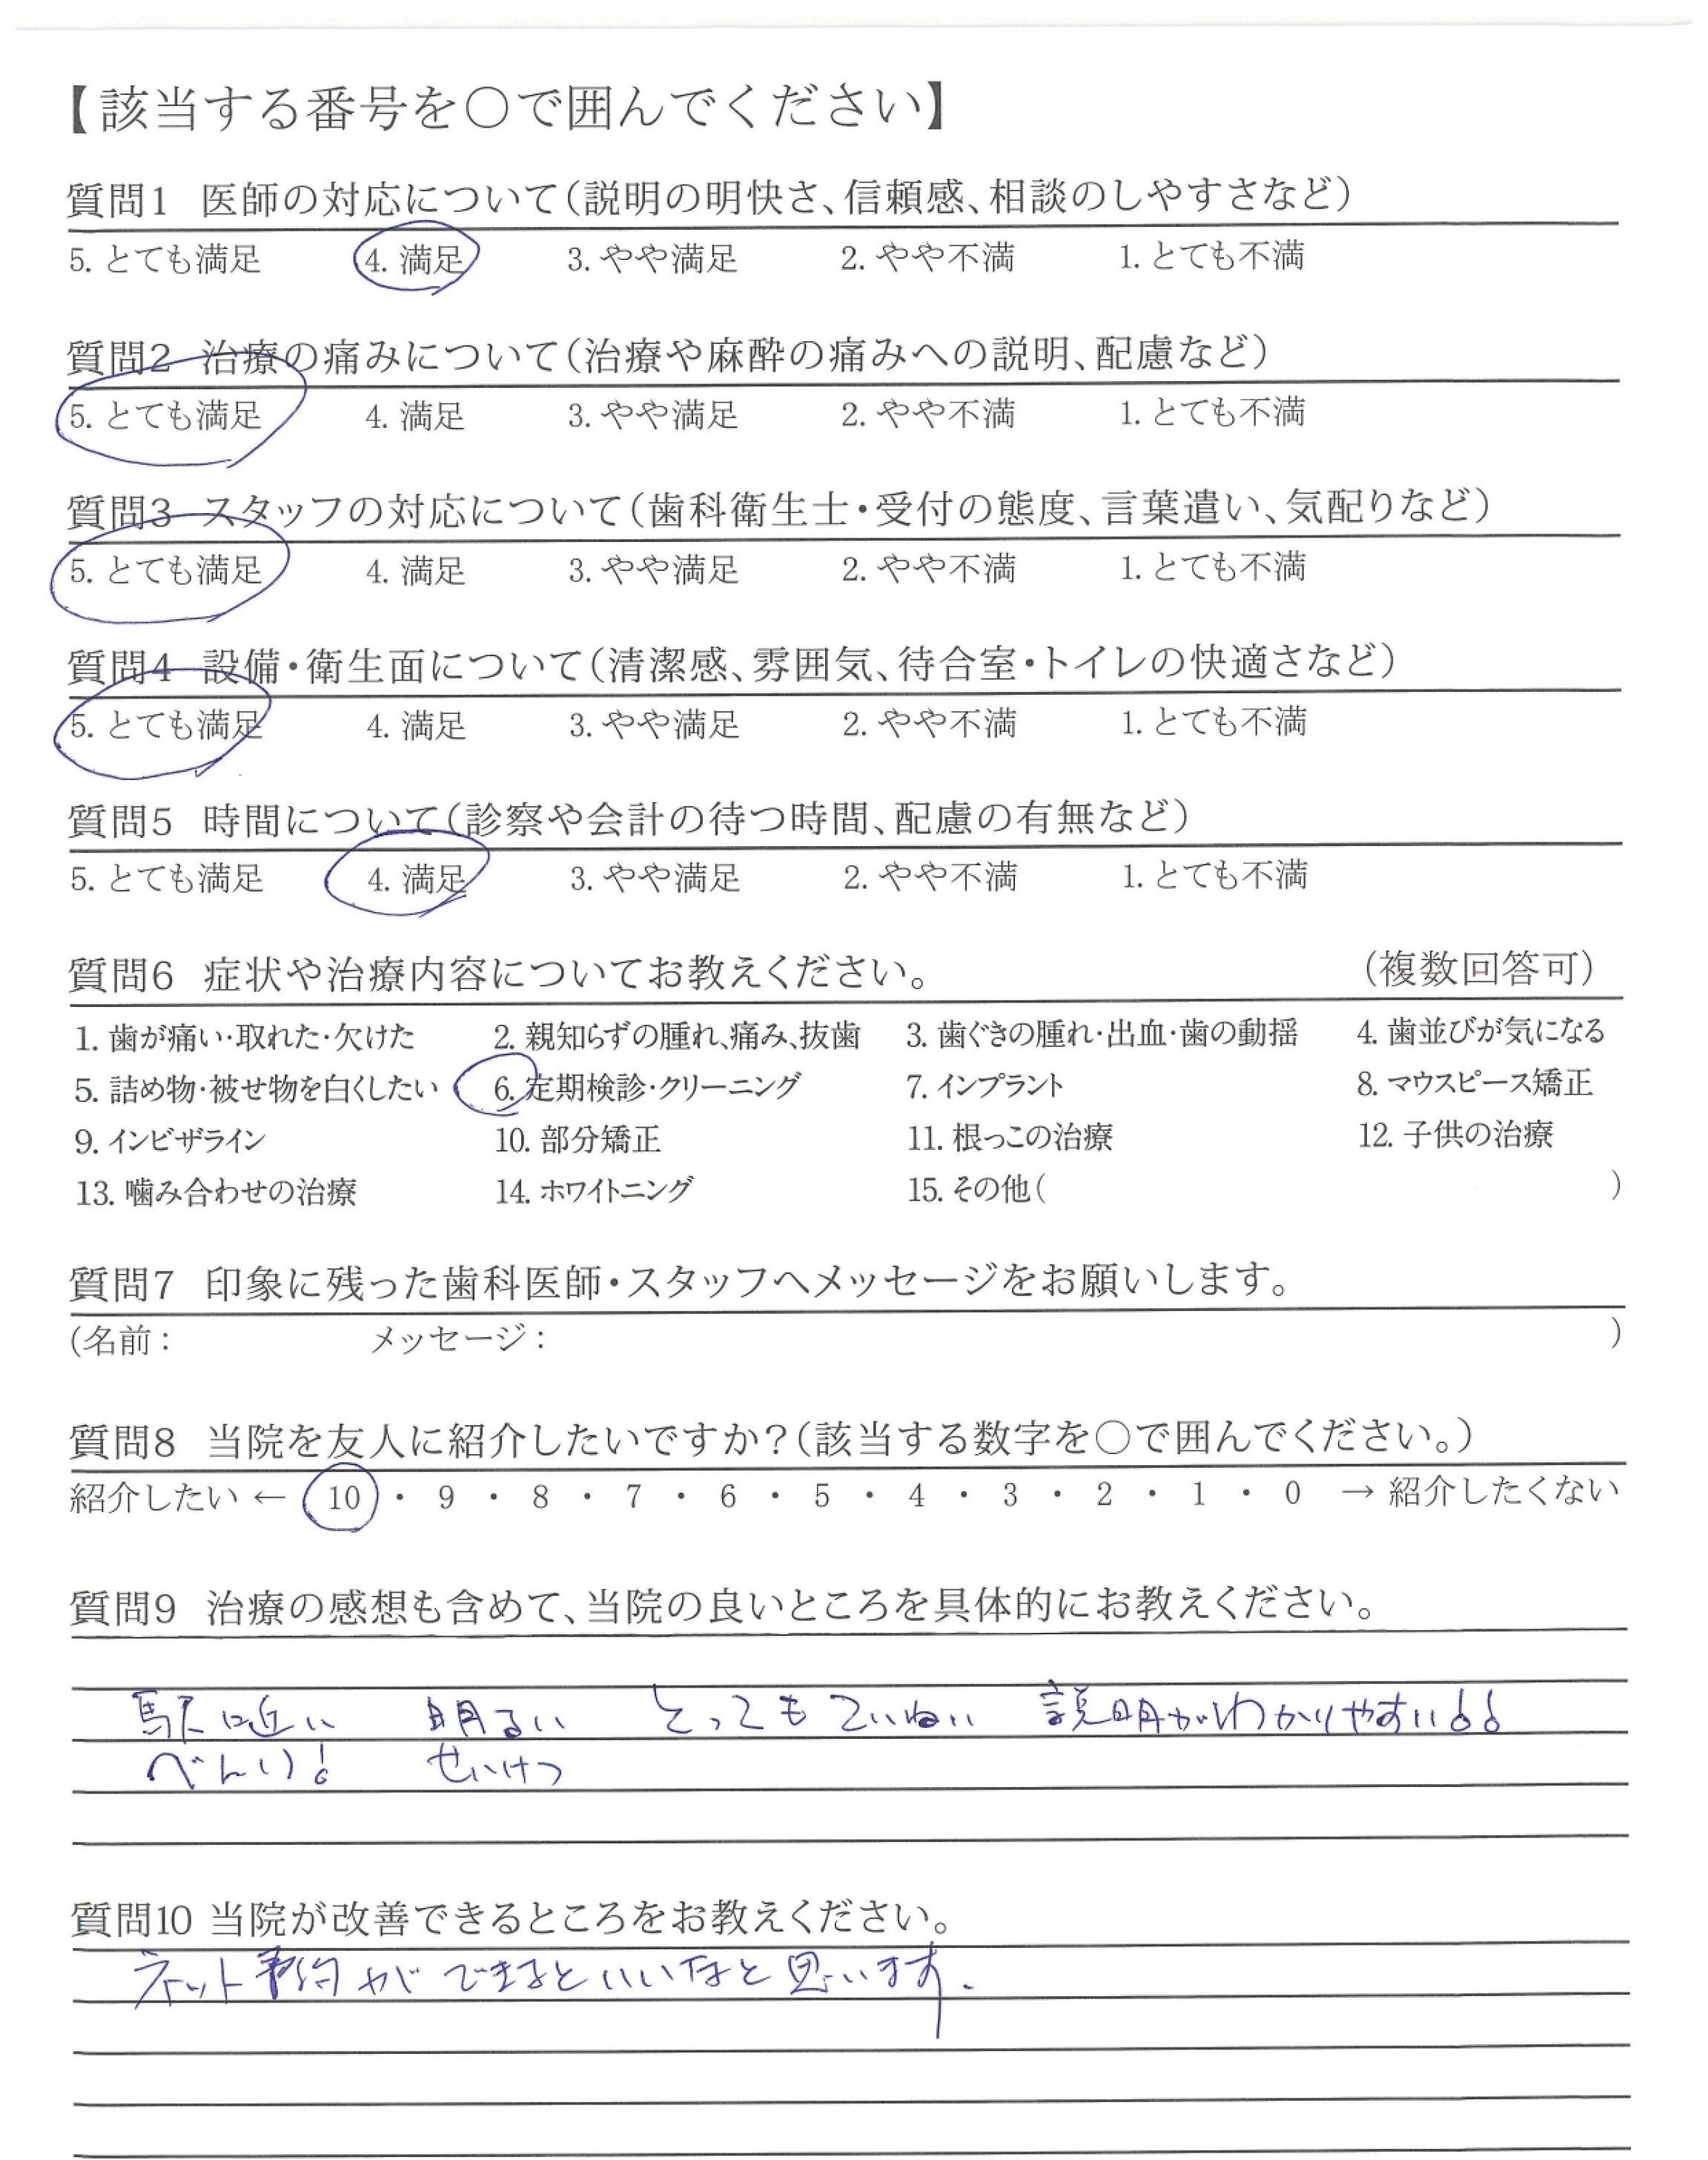 【該当する番号を〇で囲んでください】
質問1 医師の対応について(説明の明快さ、信頼感、相談のしやすさなど)
5. とても満足 4. 満足 3. やや満足 2. やや不満 1. とても不満
質問2 治療の痛みについて(治療や麻酔の痛みへの説明、配慮など)
5. とても満足 4. 満足 3. やや満足 2. やや不満 1. とても不満
質問3 スタッフの対応について(歯科衛生士・受付の態度、言葉遣い、気配りなど)
5. とても満足 4. 満足 3. やや満足 2. やや不満 1. とても不満
質問4 設備・衛生面について(清潔感、雰囲気、待合室・トイレの快適さなど)
5. とても満足 4. 満足 3. やや満足 2. やや不満 1. とても不満
質問5 時間について(診察や会計の待つ時間、配慮の有無など)
5. とても満足 4. 満足 3. やや満足 2. やや不満 1. とても不満
質問6 症状や治療内容についてお教えください。 (複数回答可)
1. 歯が痛い・取れた・欠けた 2. 親知らずの腫れ、痛み、抜歯 3. 歯ぐきの腫れ・出血・歯の動揺 4. 歯並びが気になる
5. 詰め物・被せ物を白くしたい 6. 定期検診・クリーニング 7. インプラント 8. マウスピース矯正
9. インビザライン 10. 部分矯正 11. 根っこの治療 12. 子供の治療
13. 噛み合わせの治療 14. ホワイトニング 15. その他( )
質問7 印象に残った歯科医師・スタッフへメッセージをお願いします。
(名前: メッセージ: )
質問8 当院を友人に紹介したいですか?(該当する数字を〇で囲んでください。)
紹介したい ← 10 ・ 9 ・ 8 ・ 7 ・ 6 ・ 5 ・ 4 ・ 3 ・ 2 ・ 1 ・ 0 → 紹介したくない
質問9 治療の感想も含めて、当院の良いところを具体的にお教えください。
駅に近い 明るい とってもていねい 説明がわかりやすい!!
べんり! せいけつ
質問10 当院が改善できるところをお教えください。
ネット予約ができるといいなと思います.